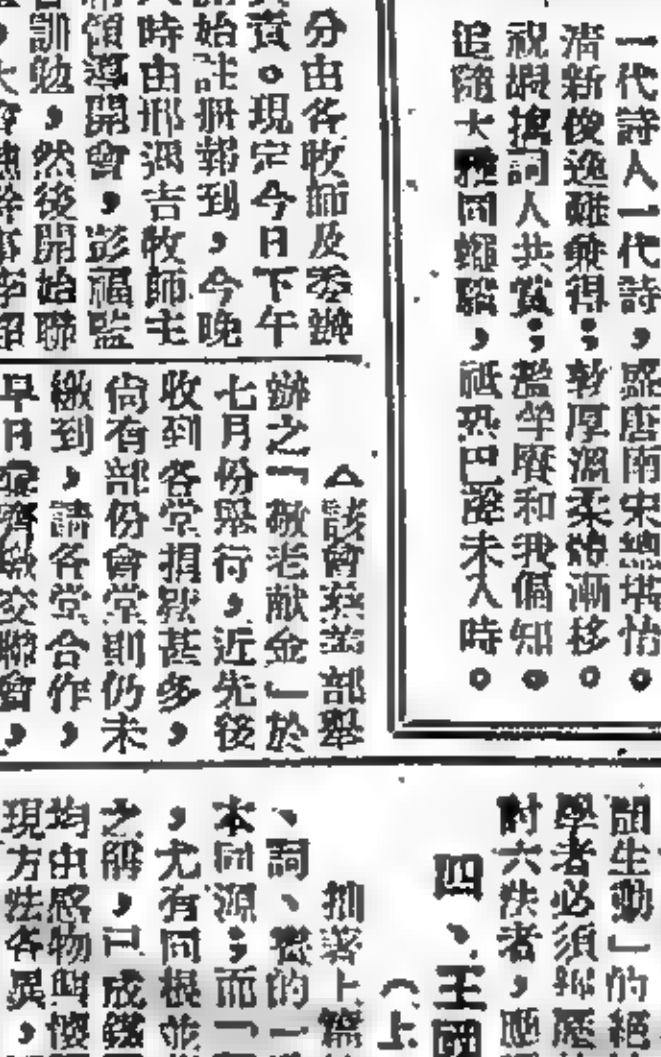 一代詩人一代詩，盛唐兩宋總堪怡
清新俊逸難兼得；敦厚溫柔漸移。
祝嘏摛詞人共賞；濫竽賡和我偏知。
追隨大雅同蠅驥，祗恐巴謳未入時。
分由各牧師及委辦
責。現定今日下午
始註冊報到，今晚
時由邢福吉牧師主
領導開會，彭福監
訓勉，然後開始聯
△該會慈善部舉
辦之「敬老献金」於
七月份舉行，近先後
收到各堂捐欵甚多，
尙有部份會堂則仍未
繳到，請各堂合作，
早日交聯會，
生動」的絕
學者必須
討六法者，應
四、王國
（上
拙著上篇
、詞、的一
本同源；而「
，尤有同根並
之解，已成鐵
均由感物興懷
現方法各異，